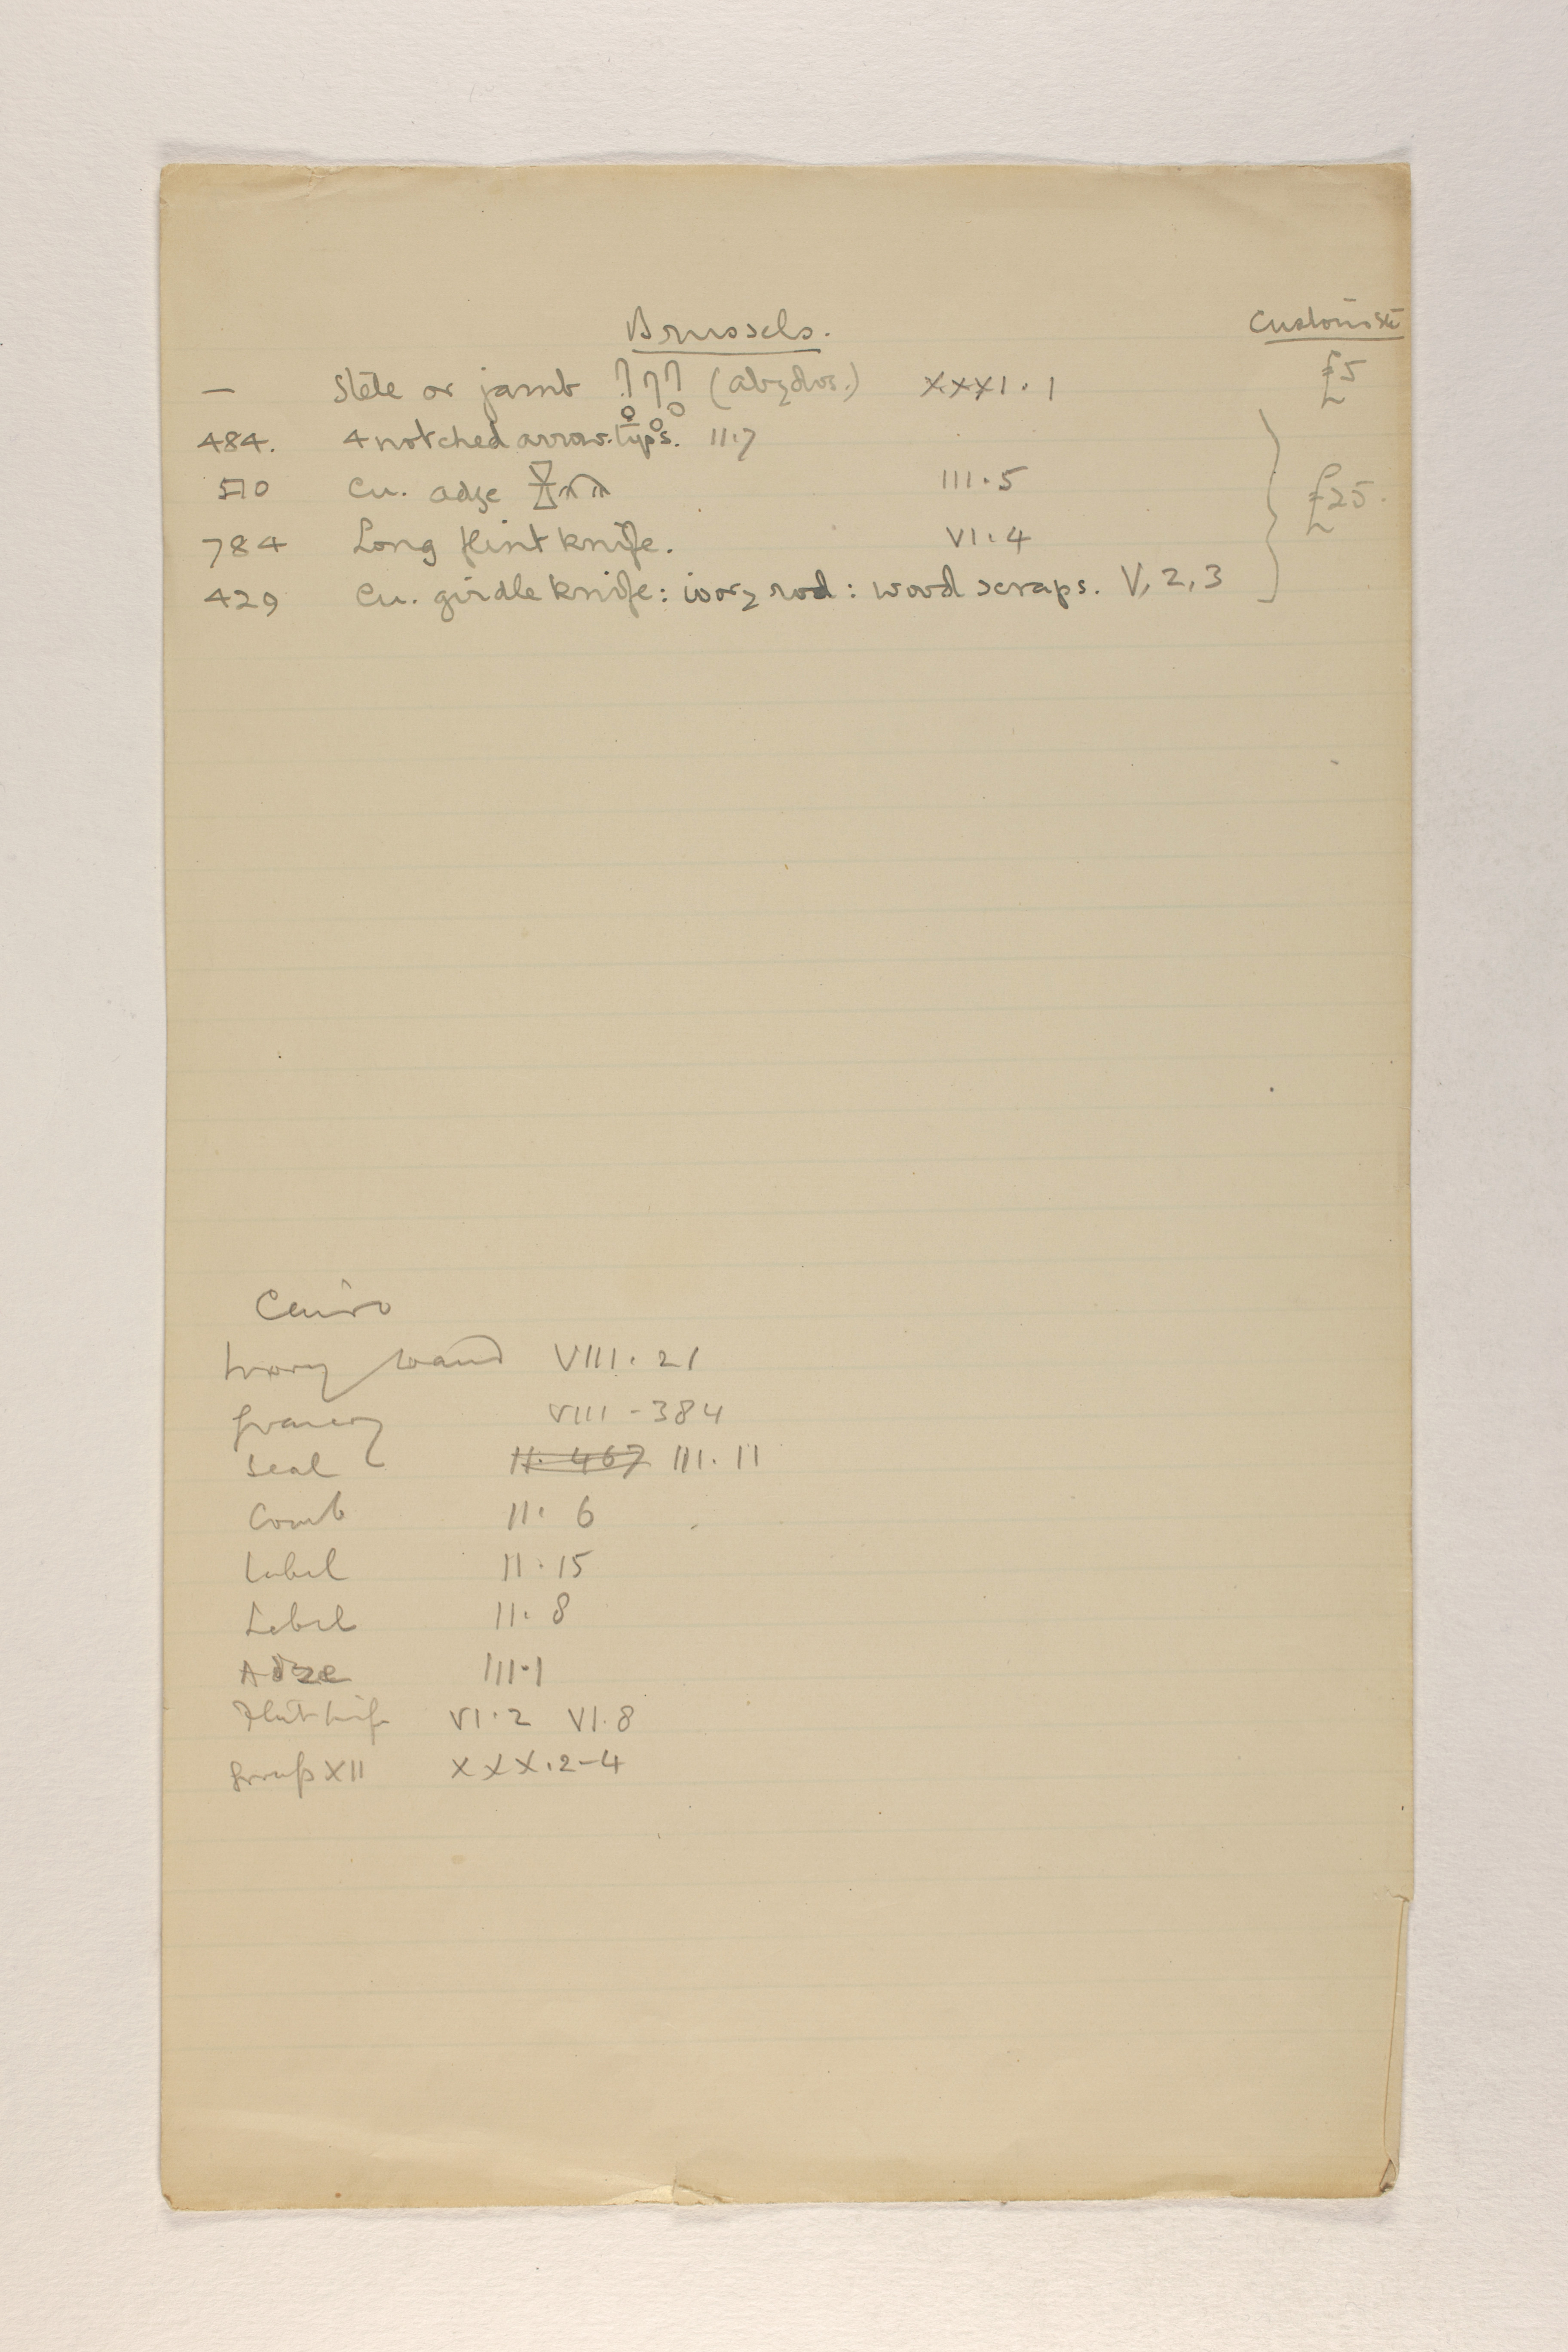 Brussels.
Customs
£5
— Stele or jamb (Abydos.) XXXI.1
484. 4 notched arrow-tips. II.7
510 Cu. adze III.5
£25.
784 Long flint knife. VI.4
429 Cu. girdle knife: ivory rod: wood scraps. V, 2, 3
Cairo
Ivory wand VIII. 21
granary VIII - 384
Seal II. 467 III. 11
Comb II. 6
Label II. 15
Label II. 8
Adze III.1
Flint knife VI.2 VI.8
group XII XXX.2-4